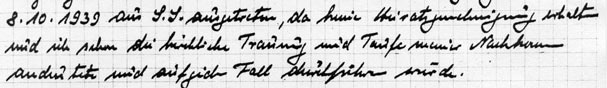 8.10.1939 aus S.S. ausgetreten, da keine Heiratsgenehmigung erhalten
und ich schon die kirchliche Trauung und Taufe meiner Nachkommen
andeutete und auf jeden Fall durchführen würde.